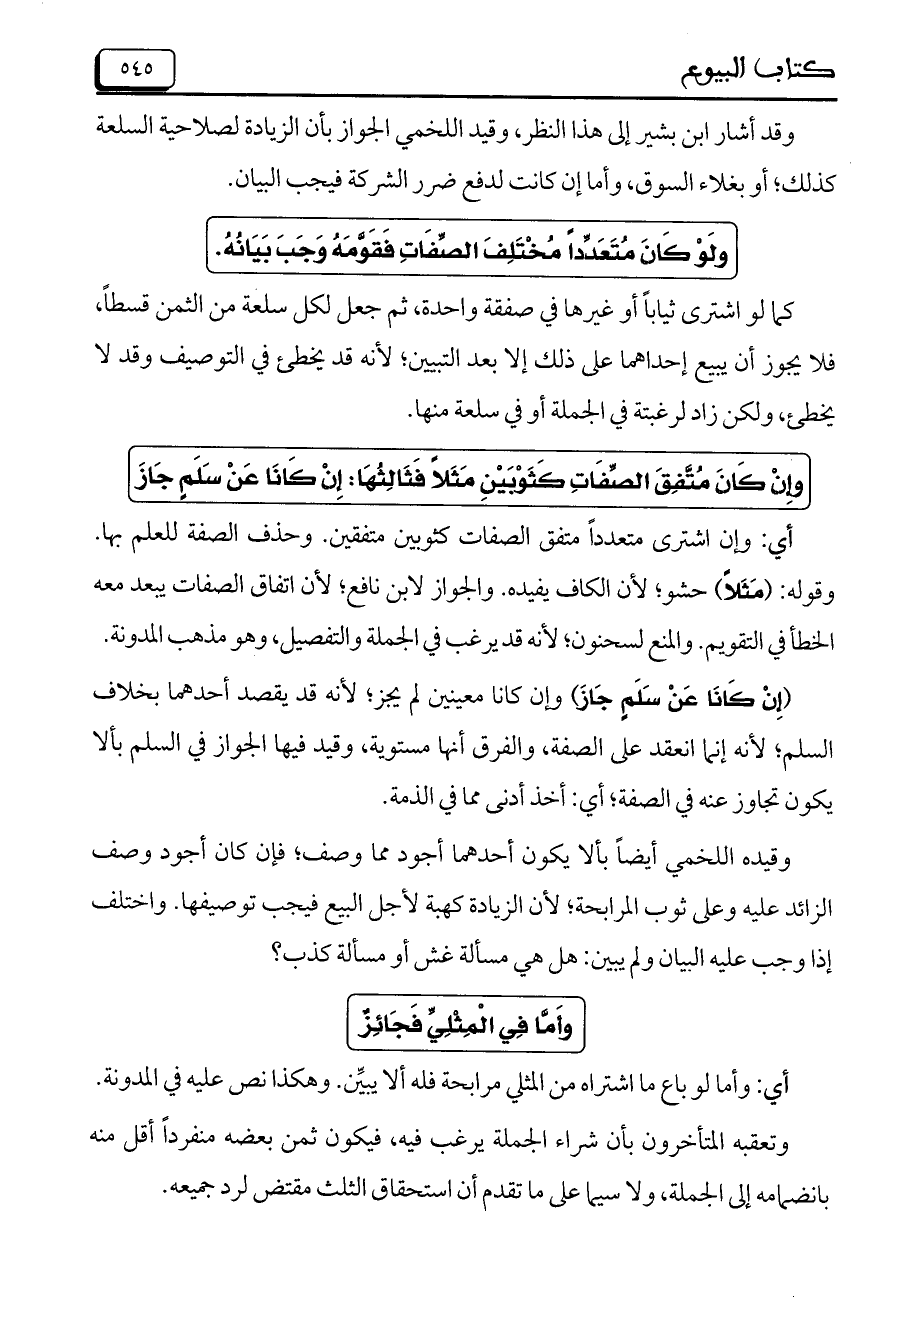 كتاب البيوع
٥٤٥
وقد أشار ابن بشير إلى هذا النظر، وقيد اللخمي الجواز بأن الزيادة لصلاحية السلعة
كذلك؛ أو بغلاء السوق، وأما إن كانت لدفع ضرر الشركة فيجب البيان.
ولَوْ كَانَ مُتَعَدِّداً مُخْتَلِفَ الصِّفَاتِ فَقَوَّمَهُ وَجَبَ بَيَانُهُ.
كما لو اشترى ثياباً أو غيرها في صفقة واحدة، ثم جعل لكل سلعة من الثمن قسطاً،
فلا يجوز أن يبيع إحداهما على ذلك إلا بعد التبيين؛ لأنه قد يخطئ في التوصيف وقد لا
يخطئ، ولكن زاد لرغبتة في الجملة أو في سلعة منها.
وإِنْ كَانَ مُتَّفِقَ الصِّفَاتِ كَثَوْبَيْنِ مَثَلاً فَثَالِثُهَا: إِنْ كَانَا عَنْ سَلَمٍ جَازَ
أي: وإن اشترى متعدداً متفق الصفات كثوبين متفقين. وحذف الصفة للعلم بها.
وقوله: (مَثَلاً) حشو؛ لأن الكاف يفيده. والجواز لابن نافع؛ لأن اتفاق الصفات يبعد معه
الخطأ في التقويم. والمنع لسحنون؛ لأنه قد يرغب في الجملة والتفصيل، وهو مذهب المدونة.
(إِنْ كَانَا عَنْ سَلَمٍ جَازَ) وإن كانا معينين لم يجز؛ لأنه قد يقصد أحدهما بخلاف
السلم؛ لأنه إنما انعقد على الصفة، والفرق أنها مستوية، وقيد فيها الجواز في السلم بألا
يكون تجاوز عنه في الصفة؛ أي: أخذ أدنى مما في الذمة.
وقيده اللخمي أيضاً بألا يكون أحدهما أجود مما وصف؛ فإن كان أجود وصف
الزائد عليه وعلى ثوب المرابحة؛ لأن الزيادة كهبة لأجل البيع فيجب توصيفها. واختلف
إذا وجب عليه البيان ولم يبين: هل هي مسألة غش أو مسألة كذب؟
وأَمَّا فِي الْمِثْلِيِّ فَجَائِزٌ
أي: وأما لو باع ما اشتراه من المثلي مرابحة فله ألا يبيِّن. وهكذا نص عليه في المدونة.
وتعقبه المتأخرون بأن شراء الجملة يرغب فيه، فيكون ثمن بعضه منفرداً أقل منه
بانضمامه إلى الجملة، ولا سيما على ما تقدم أن استحقاق الثلث مقتض لرد جميعه.